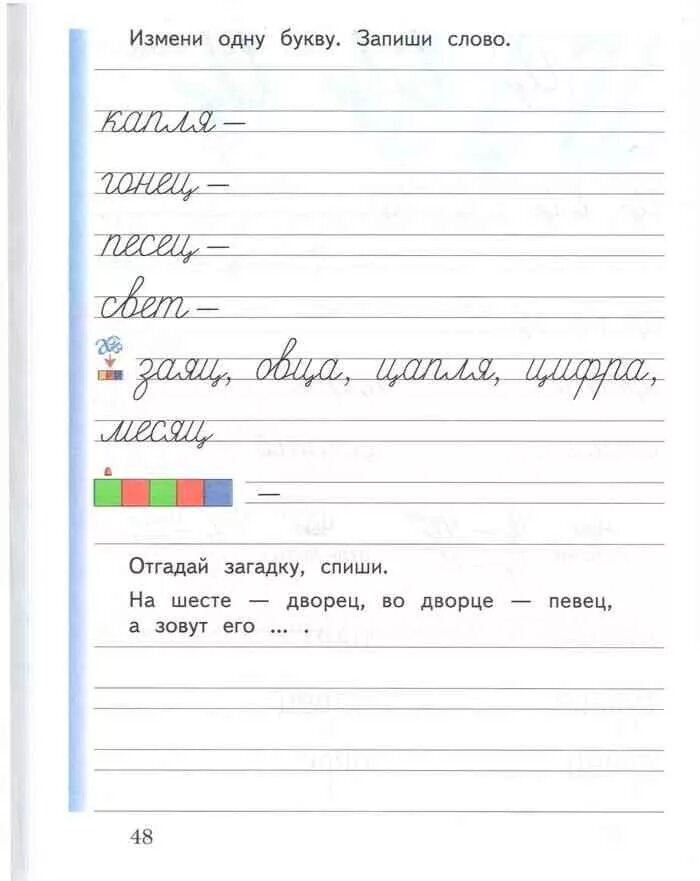 Измени одну букву. Запиши слово.
капля —
гонец —
песец —
свет —
заяц, овца, цапля, цифра,
месяц
—
Отгадай загадку, спиши.
На шесте — дворец, во дворце — певец,
а зовут его ... .
48